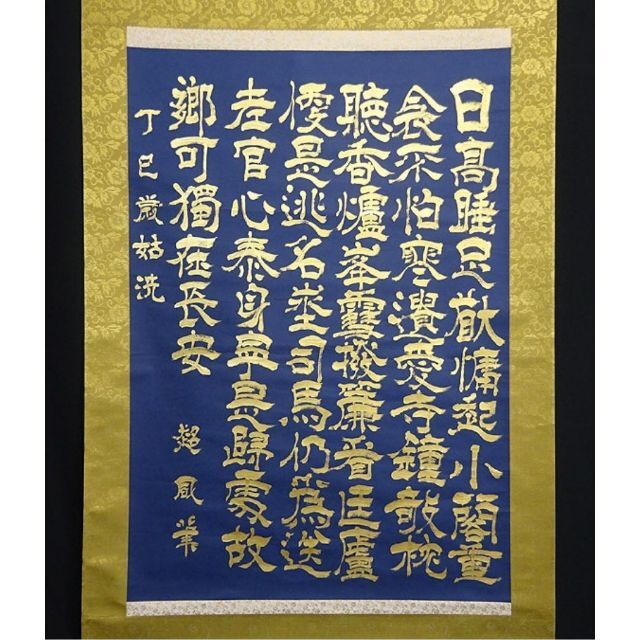 日高睡足猶慵起小閣重
衾不怕寒遺愛寺鐘敧枕
聽香爐峯雪撥簾看匡廬
便是逃名地司馬仍爲送
老官心泰身寧是歸處故
鄉可獨在長安
丁巳歳姑洗
超風筆